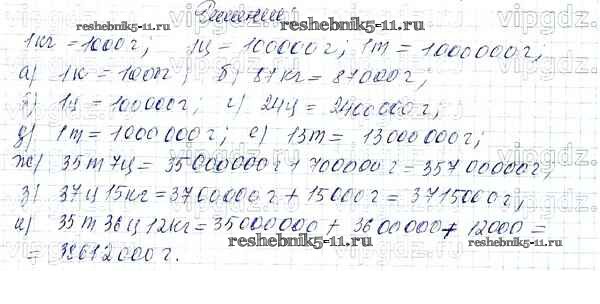 Решение
1кг = 1000г; 1ц = 100000г; 1т = 1000000г;
а) 1к = 1000г; б) 81кг = 81000г;
в) 1ц = 100000г; г) 24ц = 2400000г;
д) 1т = 1000000г; е) 13т = 13000000г;
ж) 35т 7ц = 35000000г + 700000г = 35700000г;
з) 37ц 15кг = 3700000г + 15000г = 3715000г;
и) 35т 36ц 12кг = 35000000 + 3600000 + 12000 =
= 38612000г.
reshebnik5-11.ru
reshebnik5-11.ru
reshebnik5-11.ru
reshebnik5-11.ru
vipgdz.